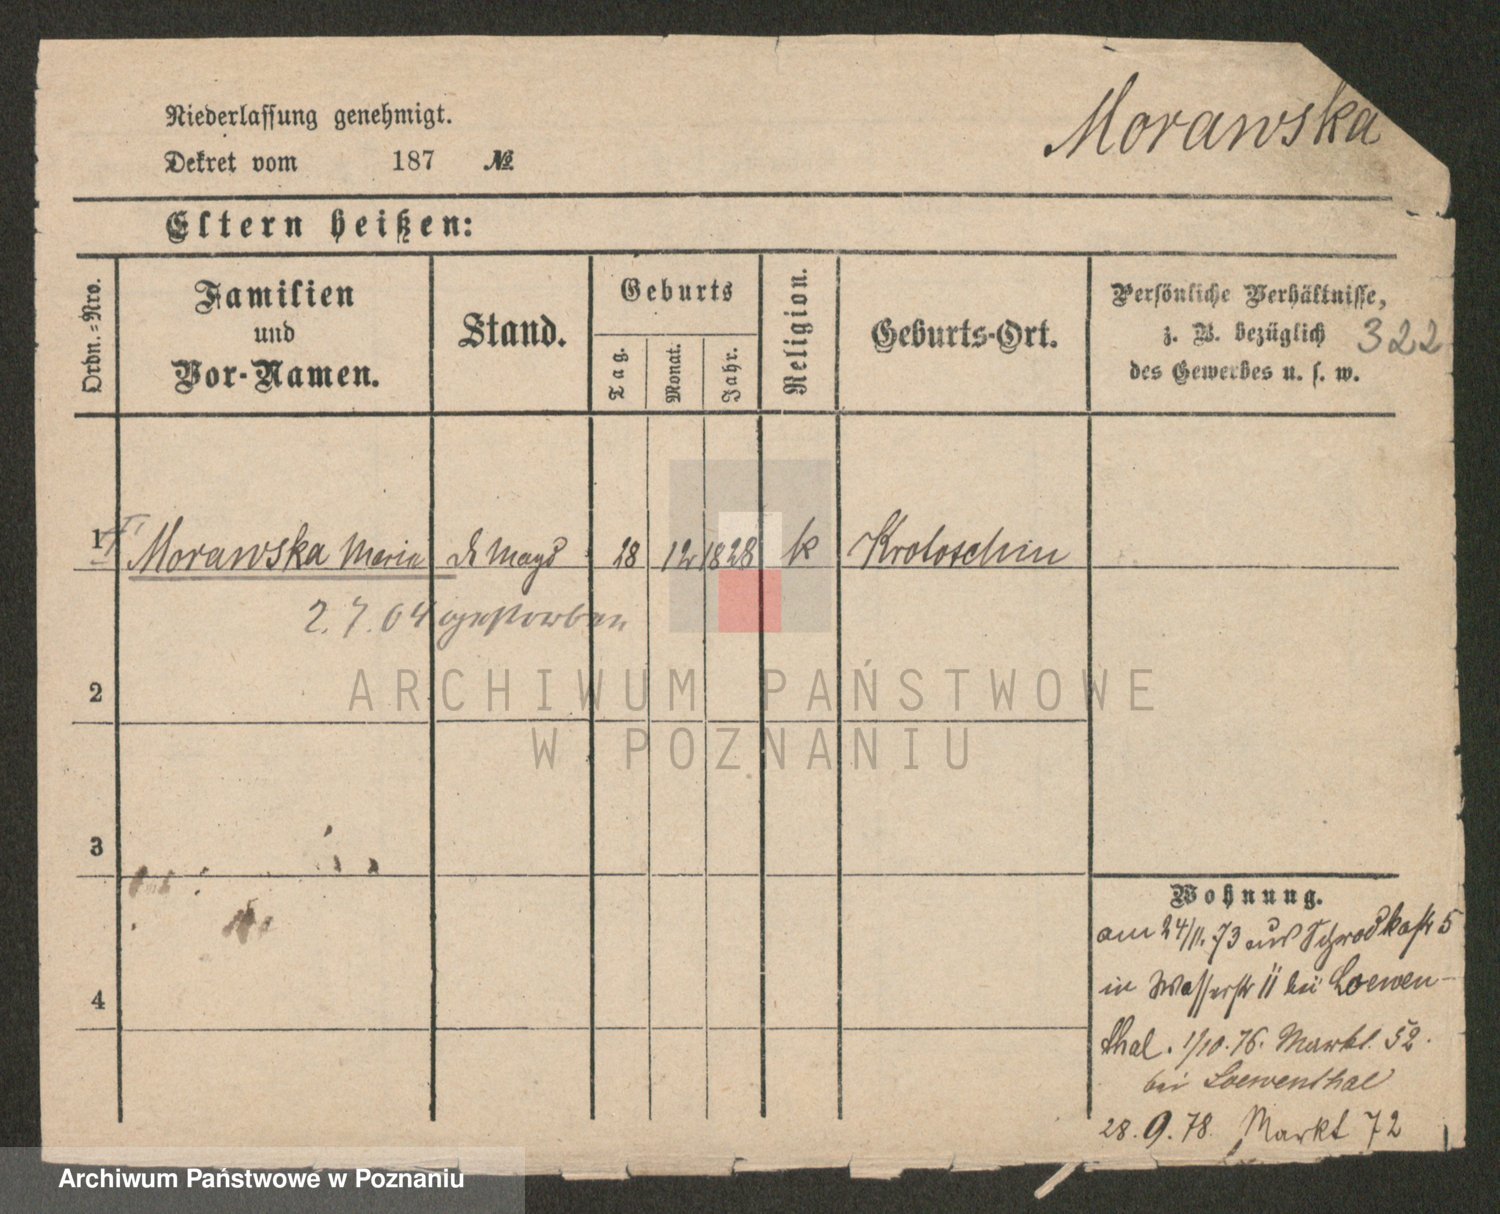 Morawska
Niederlassung genehmigt.
Dekret vom 187 №
Eltern heißen:
Ordn.-Nro.
Familien
und
Vor-Namen.
Stand.
Geburts
Tag.
Monat.
Jahr.
Religion.
Geburts-Ort.
Persönliche Verhältnisse,
z. B. bezüglich
des Gewerbes u. s. w.
322
1 Morawska Maria d Magd 28 12 1828 k Krotoschin
2.7.04 gestorben
2
3
4
Wohnung.
am 24/11.73 aus Schrodkastr 5
in Wasserstr 11 bei Loewen-
thal. 1/10.76. Markt. 52.
bei Loewenthal
28.9.78. Markt 72
ARCHIWUM PAŃSTWOWE
W POZNANIU
Archiwum Państwowe w Poznaniu